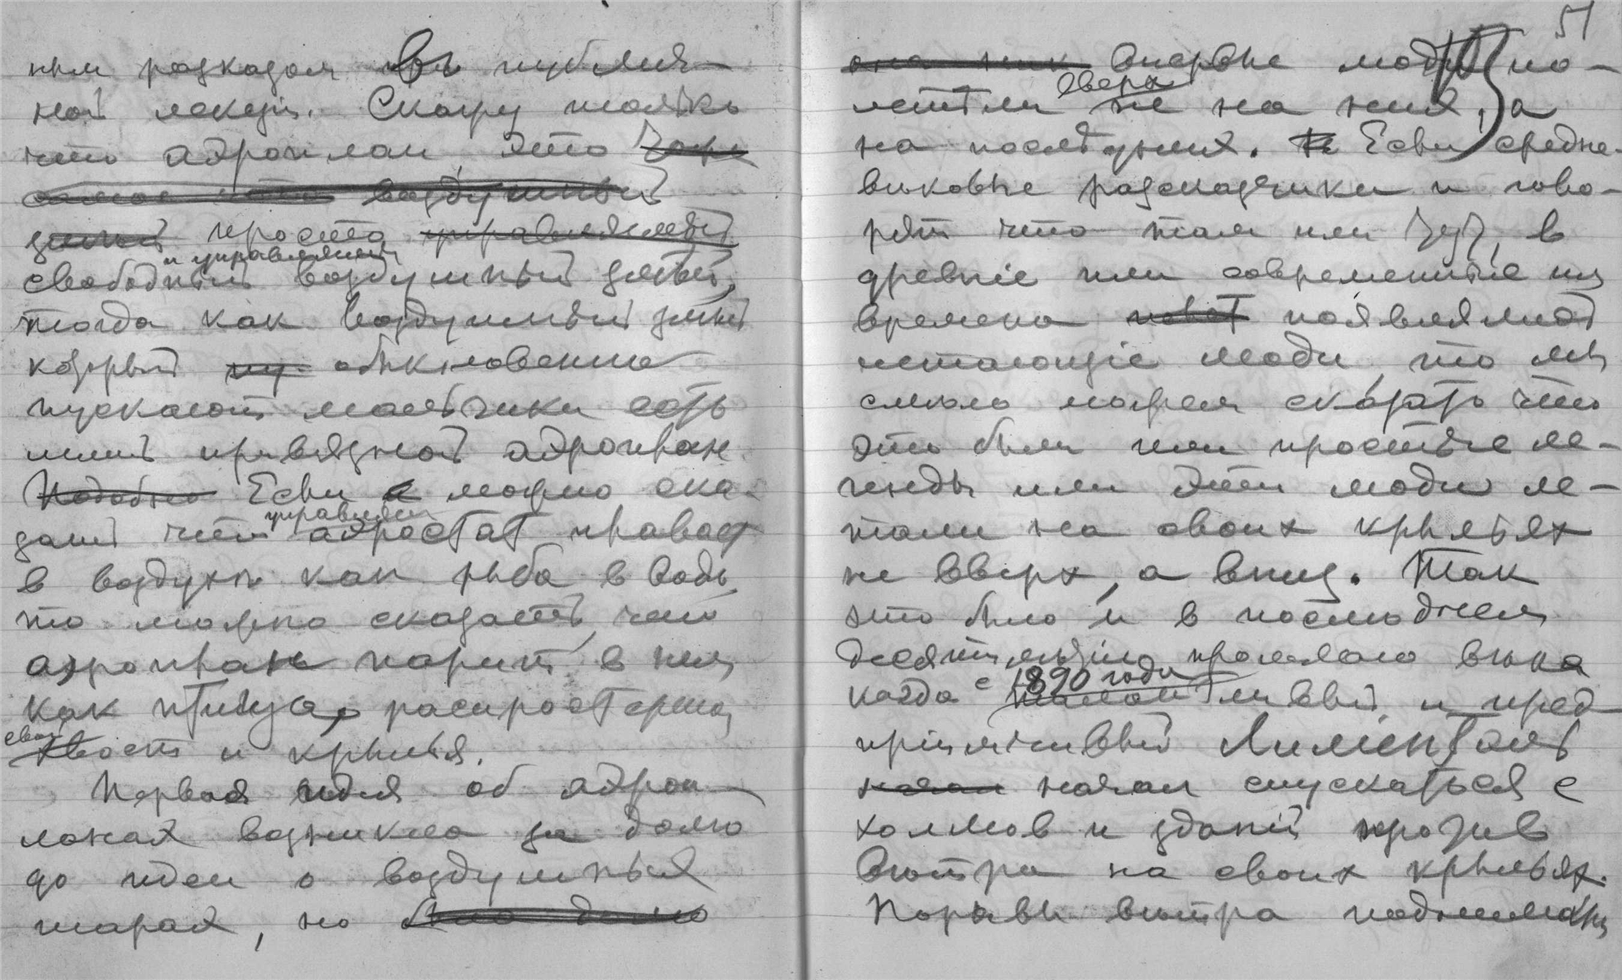 ным разказом въ публич-
ной лекціи. Скажу только
что аэроплан, это
самое что воздушный
змѣй просто управляемый
и управляемый
свободный воздушный змѣй,
тогда как воздушный змѣй
который обыкновенно
пускают мальчики есть
привязной аэроплан
Подобно Если можно ска-
управляем
зать что аэростат плавает
в воздухѣ как рыба в водѣ,
то можно сказать, что
аэроплан парит в нем,
как птица, распростерши
свой
хвост и крылья.
Первая идея об аэроп-
ланах возникла за долго
до идеи о воздушных
шарах, но было долго
51
впервые люди по-
вверх
летѣли не на них, а
на послѣдних. Если средне-
вѣковые разсказчики и гово-
рят что там или тут, в
древніе или современные им
времена появлялись
летающіе люди, то мы
смѣло можем сказать что
это были или простые ле-
генды или эти люди ле-
тали на своих крыльях
не вверх, а вниз. Так
это было и в послѣднем
десятилѣтіи прошлаго вѣка
когда с 1890 года
талантливый и пред-
пріимчивый Лиліенталь
начал начал спускаться с
холмов и зданій против
вѣтра на своих крыльях.
Порывы вѣтра поднимали